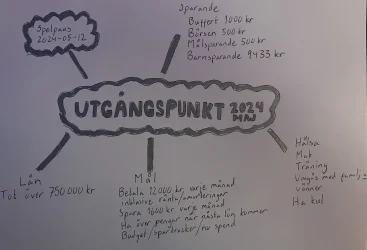 Spelpaus
2024-05-12
Sparande
Buffert 1000 kr
Börsen 500 kr
Målsparande 500 kr
Barnsparande 9433 kr
UTGÅNGSPUNKT 2024
MAJ
Lån
Tot över 750 000 kr
Mål
Betala 12000 kr varje månad
inklusive ränta/amorteringar
Spara 1600 kr varje månad
Ha över pengar när nästa lön kommer
Budget/sparbössor/no spend
Hälsa
Mat
Träning
Umgås med familj +
vänner
Ha kul